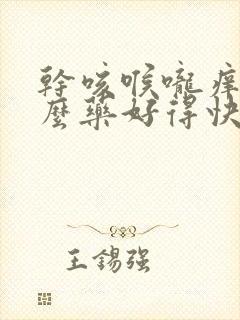 幹咳喉嚨痒
麼藥好得快
王錫强